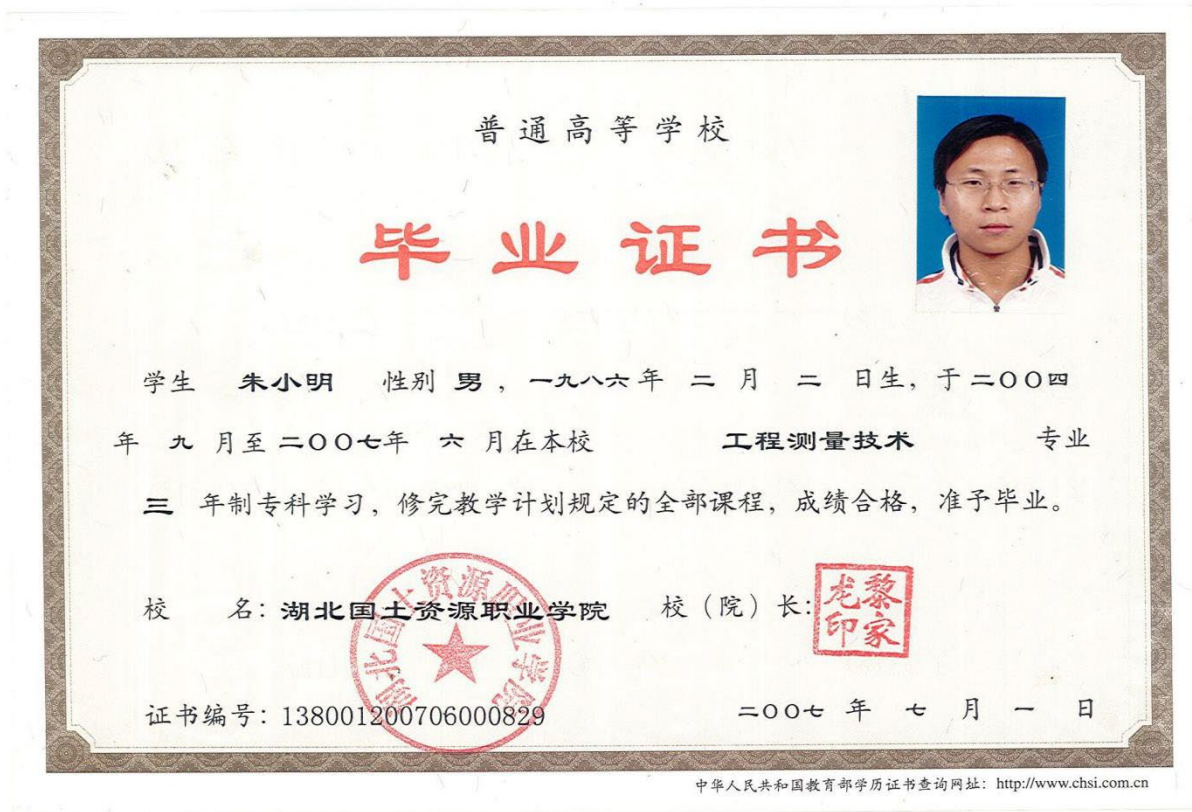 普通高等学校
毕业证书
学生 朱小明 性别 男，一九八六年 二 月 二 日生，于二〇〇四
年 九 月至二〇〇七年 六 月在本校 工程测量技术 专业
三 年制专科学习，修完教学计划规定的全部课程，成绩合格，准予毕业。
校 名：湖北国土资源职业学院 校（院）长：
黎家龙印
湖北国土资源职业学院
证书编号：138001200706000829 二〇〇七 年 七 月 一 日
中华人民共和国教育部学历证书查询网址：http://www.chsi.com.cn